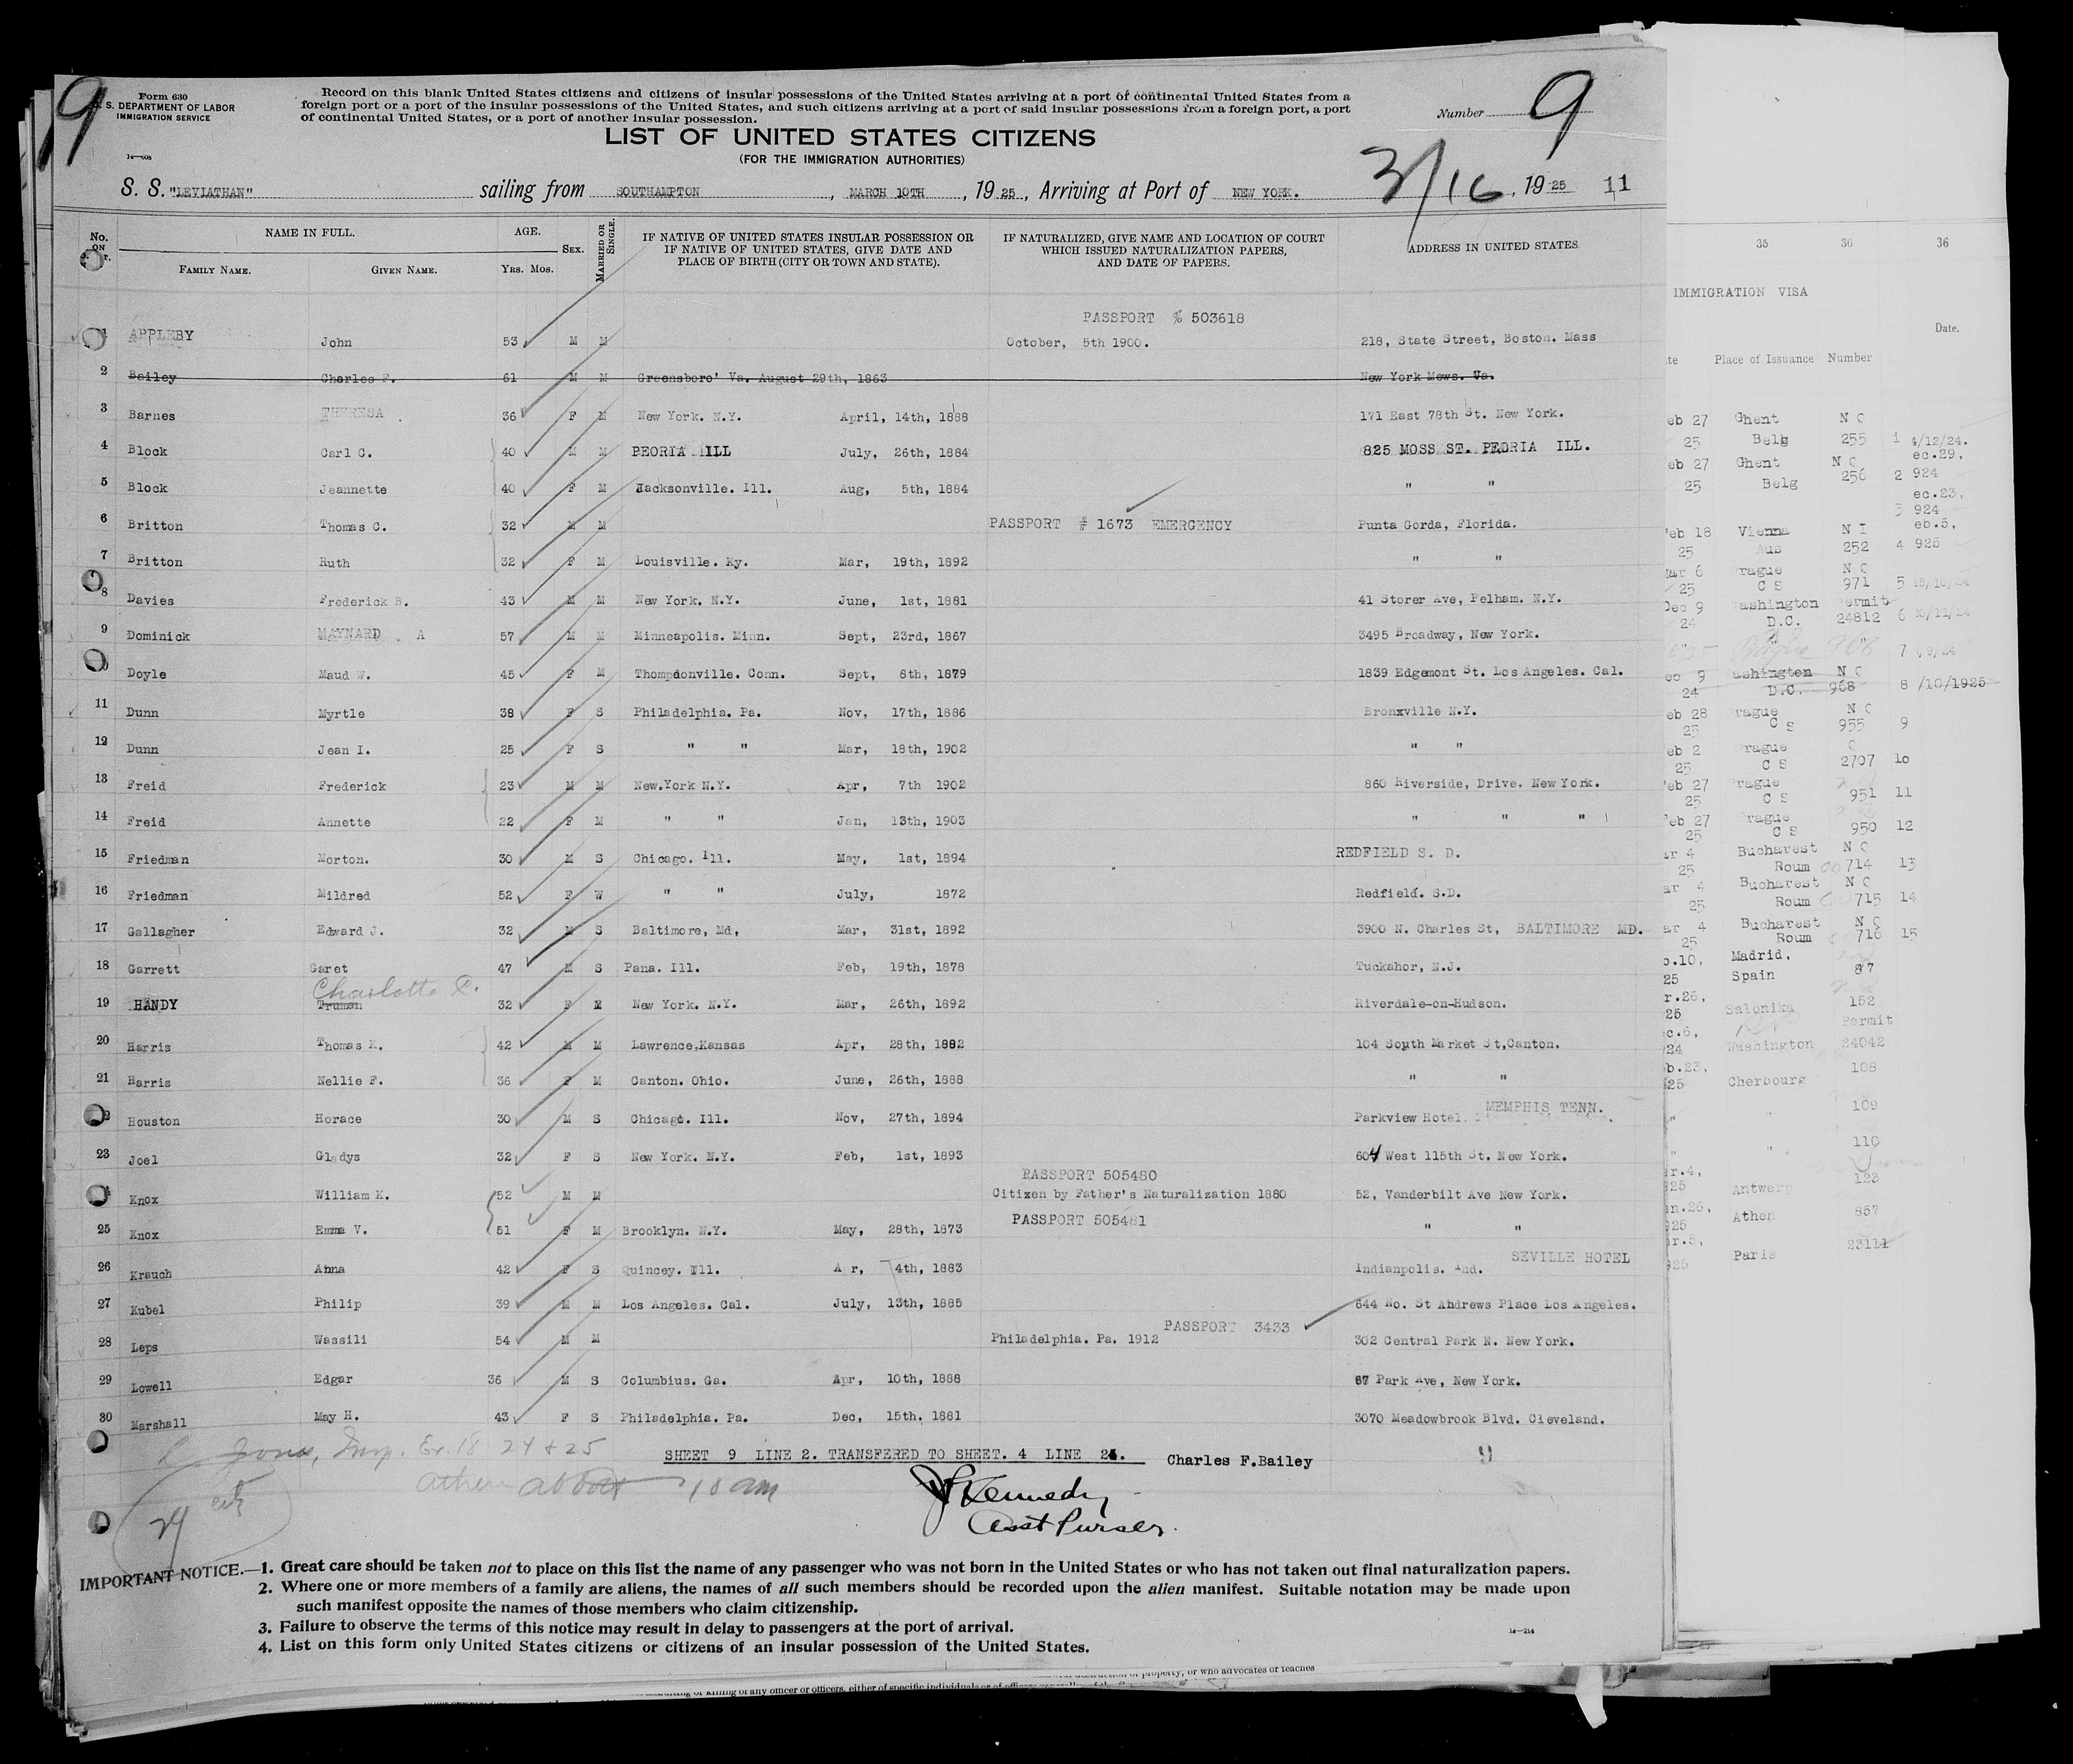 9
Form 630
U. S. DEPARTMENT OF LABOR
IMMIGRATION SERVICE
Record on this blank United States citizens and citizens of insular possessions of the United States arriving at a port of continental United States from a
foreign port or a port of the insular possessions of the United States, and such citizens arriving at a port of said insular possessions from a foreign port, a port
of continental United States, or a port of another insular possession.
Number 9
LIST OF UNITED STATES CITIZENS
(FOR THE IMMIGRATION AUTHORITIES)
S. S. "LEVIATHAN" sailing from SOUTHAMPTON, MARCH 10TH, 1925, Arriving at Port of NEW YORK. 3/16, 1925 11
No. ON NAME IN FULL. AGE. Sex. MARRIED OR SINGLE. IF NATIVE OF UNITED STATES INSULAR POSSESSION OR IF NATIVE OF UNITED STATES, GIVE DATE AND PLACE OF BIRTH (CITY OR TOWN AND STATE). IF NATURALIZED, GIVE NAME AND LOCATION OF COURT WHICH ISSUED NATURALIZATION PAPERS, AND DATE OF PAPERS. ADDRESS IN UNITED STATES.
FAMILY NAME. GIVEN NAME. YRS. MOS.
PASSPORT % 503618
APPLEBY John 53 M M October, 5th 1900. 218, State Street, Boston. Mass
2 Bailey Charles F. 61 M M Greensboro' Va. August 29th, 1863 New York Mews. Va.
3 Barnes THERESA . 36 F M New York. N.Y. April, 14th, 1888 171 East 78th St. New York.
4 Block Carl C. 40 M M PEORIA ILL July, 26th, 1884 825 MOSS ST. PEORIA ILL.
5 Block Jeannette 40 F M Jacksonville. Ill. Aug, 5th, 1884 " "
6 Britton Thomas C. 32 M M PASSPORT # 1673 EMERGENCY Punta Gorda, Florida.
7 Britton Ruth 32 F M Louisville. Ky. Mar, 19th, 1892 " "
8 Davies Frederick B. 43 M M New York. N.Y. June, 1st, 1881 41 Storer Ave, Pelham. N.Y.
9 Dominick MAYNARD A 57 M M Minneapolis. Minn. Sept, 23rd, 1867 3495 Broadway, New York.
Doyle Maud W. 45 F M Thompdonville. Conn. Sept, 8th, 1879 1839 Edgemont St. Los Angeles. Cal.
11 Dunn Myrtle 38 F S Philadelphia. Pa. Nov, 17th, 1886 Bronxville N.Y.
12 Dunn Jean I. 25 F S " " Mar, 18th, 1902 " "
13 Freid Frederick 23 M M New.York N.Y. Apr, 7th 1902 860 Riverside, Drive. New York.
14 Freid Annette 22 F M " " Jan, 13th, 1903 " " "
15 Friedman Norton. 30 M S Chicago. Ill. May, 1st, 1894 REDFIELD S. D.
16 Friedman Mildred 52 F W " " July, 1872 Redfield. S.D.
17 Gallagher Edward J. 32 M S Baltimore, Md, Mar, 31st, 1892 3900 N. Charles St, BALTIMORE MD.
18 Garrett Garet 47 M S Pana. Ill. Feb, 19th, 1878 Tuckahor, N.J.
Charlotte C.
19 HANDY Truman 32 F M New York. N.Y. Mar, 26th, 1892 Riverdale-on-Hudson.
20 Harris Thomas K. 42 M M Lawrence,Kansas Apr, 28th, 1882 104 South Market St,Canton.
21 Harris Nellie F. 36 F M Canton. Ohio. June, 26th, 1888 " "
MEMPHIS TENN.
Houston Horace 30 M S Chicago. Ill. Nov, 27th, 1894 Parkview Hotel.
23 Joel Gladys 32 F S New York. N.Y. Feb, 1st, 1893 604 West 115th St. New York.
PASSPORT 505480
Knox William K. 52 M M Citizen by Father's Naturalization 1880 52, Vanderbilt Ave New York.
PASSPORT 505481
25 Knox Emma V. 51 F M Brooklyn. N.Y. May, 28th, 1873 " "
SEVILLE HOTEL
26 Krauch Anna 42 F S Quincey. Ill. A r, 4th, 1883 Indianpolis. Ind.
27 Kubel Philip 39 M M Los Angeles. Cal. July, 13th, 1885 644 No. St Andrews Place Los Angeles.
PASSPORT 3433
28 Leps Wassili 54 M M Philadelphia. Pa. 1912 302 Central Park N. New York.
29 Lowell Edgar 36 M S Columbius. Ga. Apr, 10th, 1888 67 Park Ave, New York.
30 Marshall May H. 43 F S Philadelphia. Pa. Dec, 15th. 1881 3070 Meadowbrook Blvd. Cleveland.
Jones, Insp. Ex. 18 24 & 25
SHEET 9 LINE 2. TRANSFERED TO SHEET. 4 LINE 24. Charles F.Bailey 9
10 am
29 cit
J Kennedy
Asst Purser.
IMPORTANT NOTICE.—1. Great care should be taken not to place on this list the name of any passenger who was not born in the United States or who has not taken out final naturalization papers.
2. Where one or more members of a family are aliens, the names of all such members should be recorded upon the alien manifest. Suitable notation may be made upon
such manifest opposite the names of those members who claim citizenship.
3. Failure to observe the terms of this notice may result in delay to passengers at the port of arrival.
4. List on this form only United States citizens or citizens of an insular possession of the United States.
14—214
property, or who advocates or teaches
or killing of any officer or officers, either of specific individuals
35 36 36
IMMIGRATION VISA
Date.
te Place of Issuance Number
eb 27 Ghent N Q
25 Belg 255 1 4/12/24.
ec.29,
eb 27 Ghent N Q
25 Belg 256 2 924
ec.23,
3 924
eb.5,
eb 18 Vienna N I
25 Aus 252 4 925
ar 6 rague N Q
25 C S 971 5 15/10/24
Dec 9 ashington ermit
24 D.C. 24812 6 10/11/24
7 /9/24
ec 9 ashington N Q
24 D.C. 968 8 /10/1925
eb 28 rague N Q
25 C S 955 9
eb 2 rague Q
25 C S 2707 10
eb 27 rague
25 C S 951 11
eb 27 rague
25 C S 950 12
ar 4 Bucharest N Q
25 Roum 714 13
ar 4 Bucharest N Q
25 Roum 715 14
ar 4 Bucharest N Q
25 Roum 716 15
b.10, Madrid,
25 Spain 87
r.26, 152
25 Salonika
Permit
c.6,
24 Washington 24042
b.23, 108
25 Cherbourg
" " 109
" " 110
r.4, 123
25 Antwerp
n.26, 857
25 Athen
r.5, 23111
925 Paris